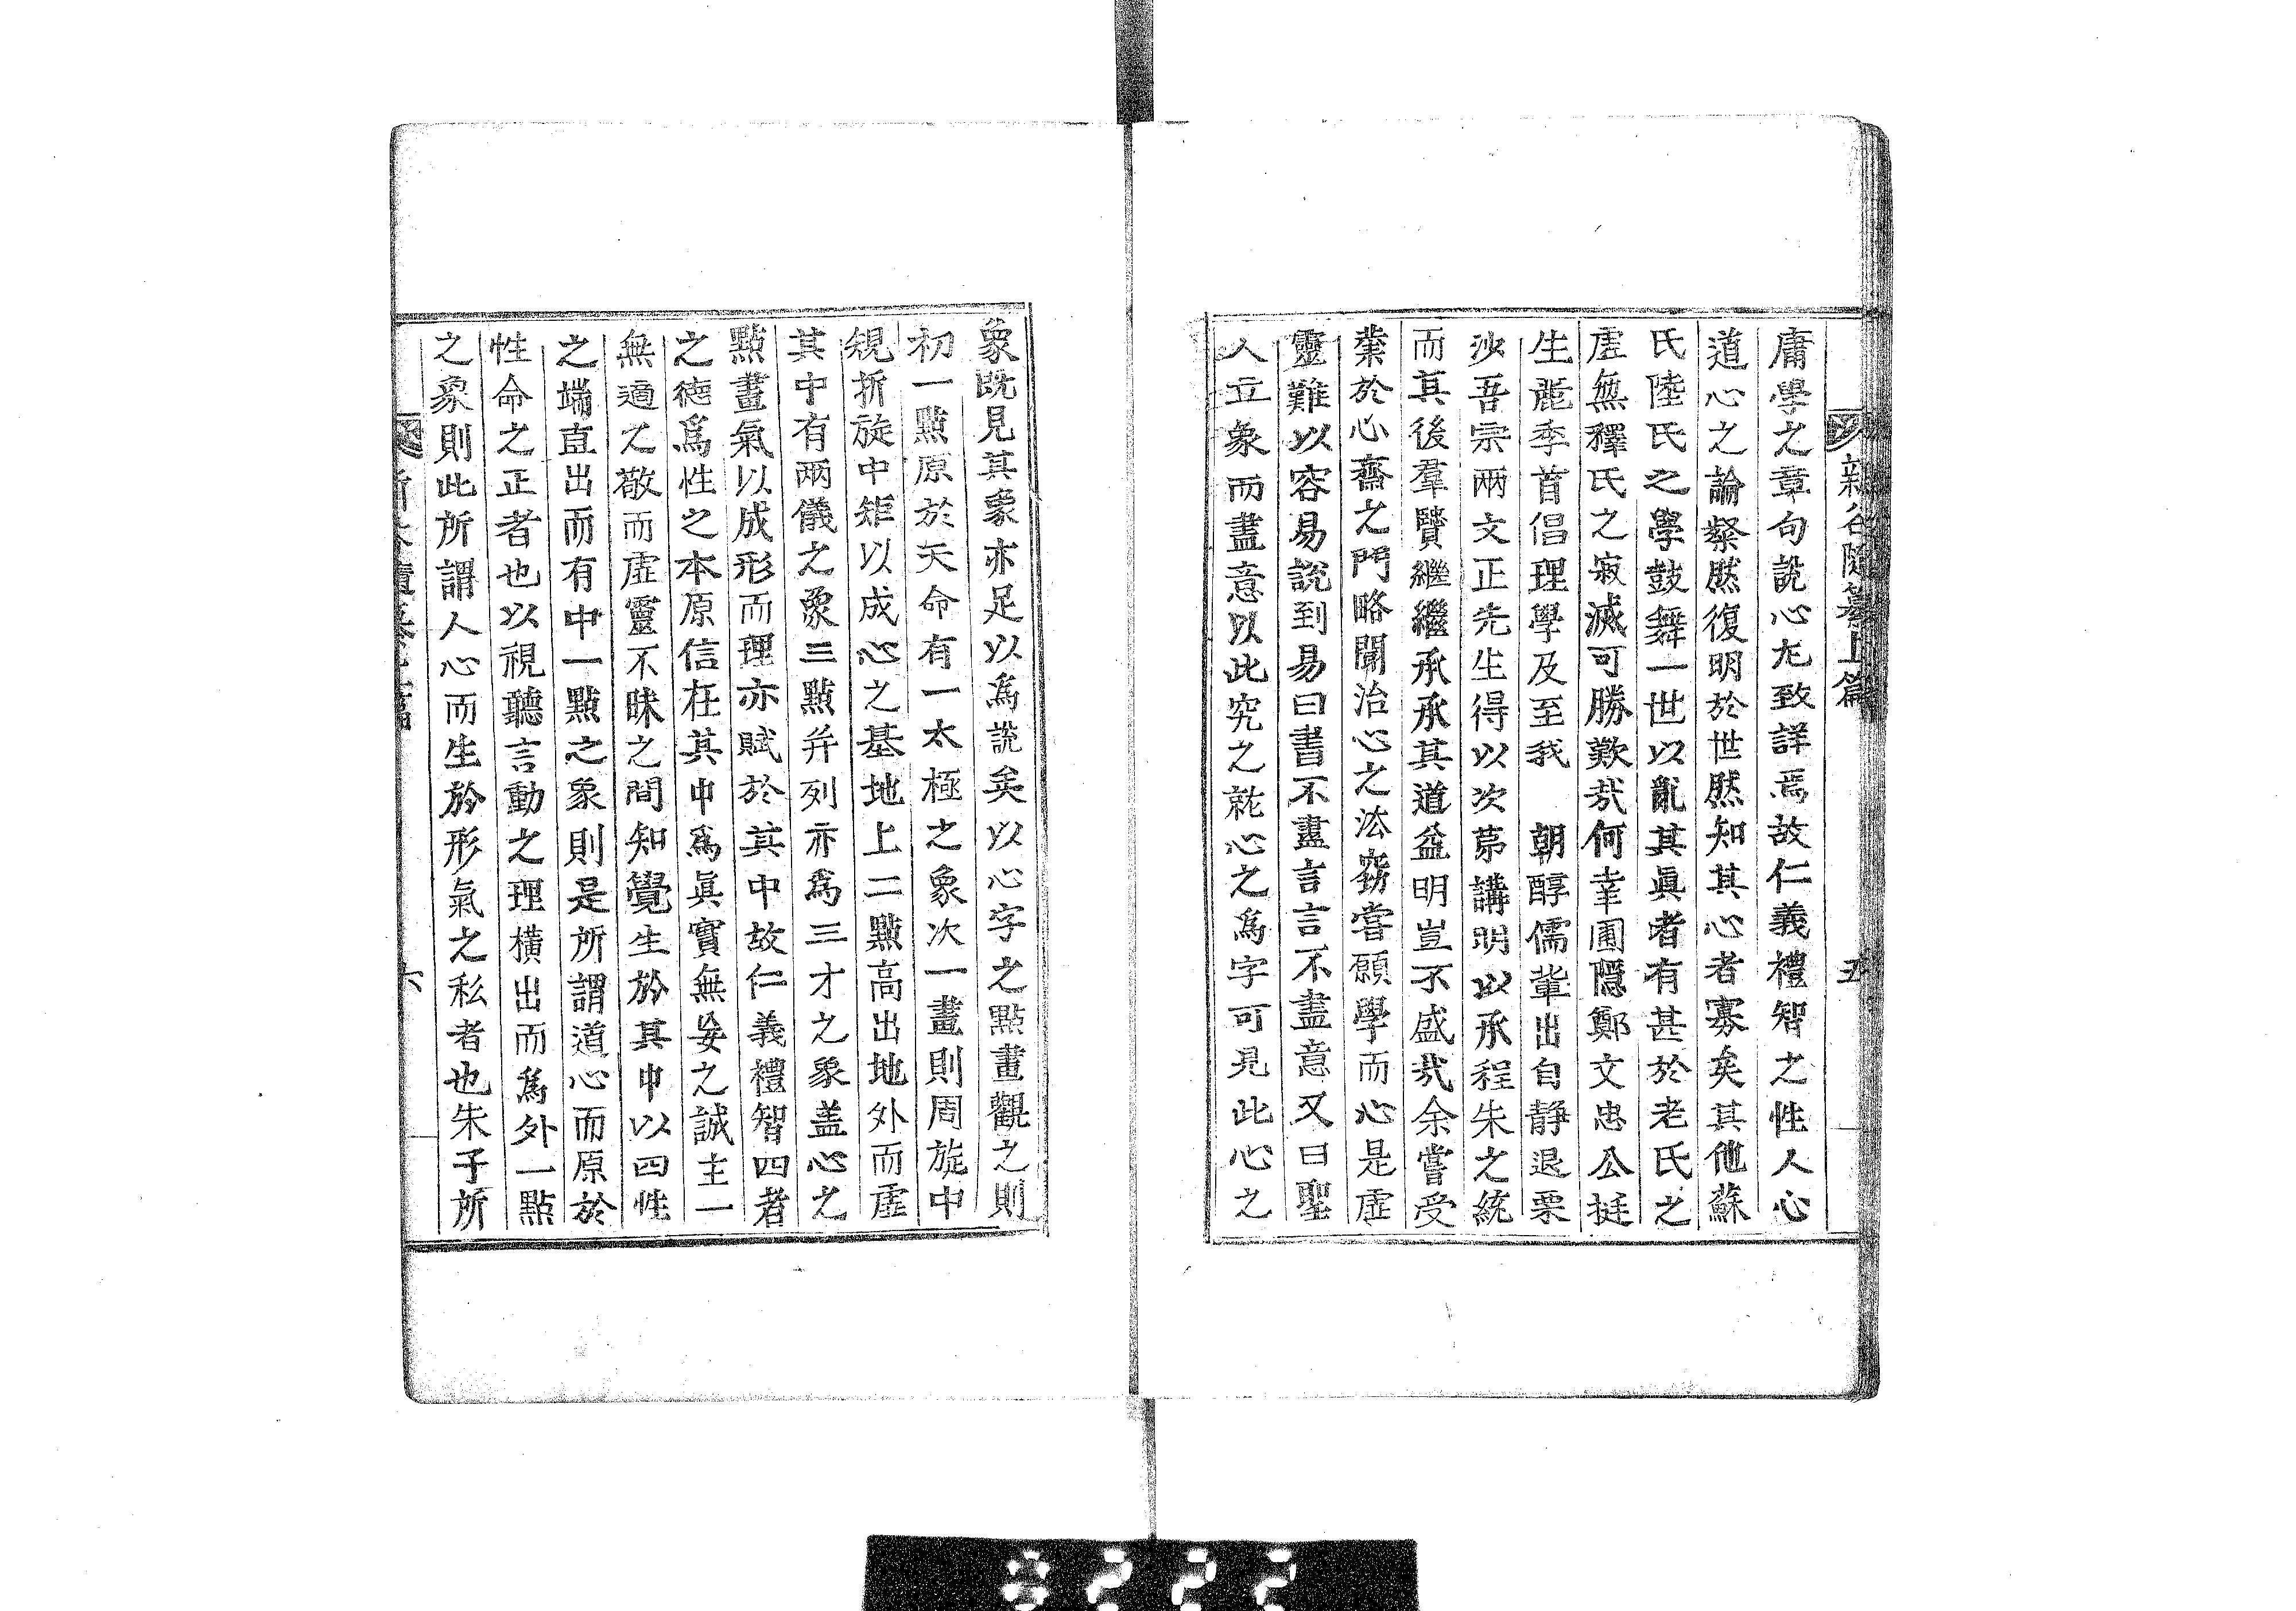 新谷隨纂上篇 五
庸學之章句說心尤致詳焉故仁義禮智之性人心
道心之論粲然復明於世然知其心者寡矣其他蘇
氏陸氏之學鼓舞一世以亂其眞者有甚於老氏之
虛無釋氏之寂滅可勝歎哉何幸圃隱鄭文忠公挺
生麗季首倡理學及至我 朝醇儒輩出自靜退栗
沙吾宗兩文正先生得以次第講明以承程朱之統
而其後羣賢繼繼承承其道益明豈不盛哉余嘗受
業於心齋之門略聞治心之法竊嘗願學而心是虛
靈難以容易說到易曰書不盡言言不盡意又曰聖
人立象而盡意以此究之就心之爲字可見此心之
象旣見其象亦足以爲說矣以心字之點畫觀之則
初一點原於天命有一太極之象次一畫則周旋中
規折旋中矩以成心之基地上二點高出地外而虛
其中有兩儀之象三點幷列亦爲三才之象盖心之
點畫氣以成形而理亦賦於其中故仁義禮智四者
之德爲性之本原信在其中爲眞實無妄之誠主一
無適之敬而虛靈不昧之間知覺生於其中以四性
之端直出而有中一點之象則是所謂道心而原於
性命之正者也以視聽言動之理橫出而爲外一點
之象則此所謂人心而生於形氣之私者也朱子所
六